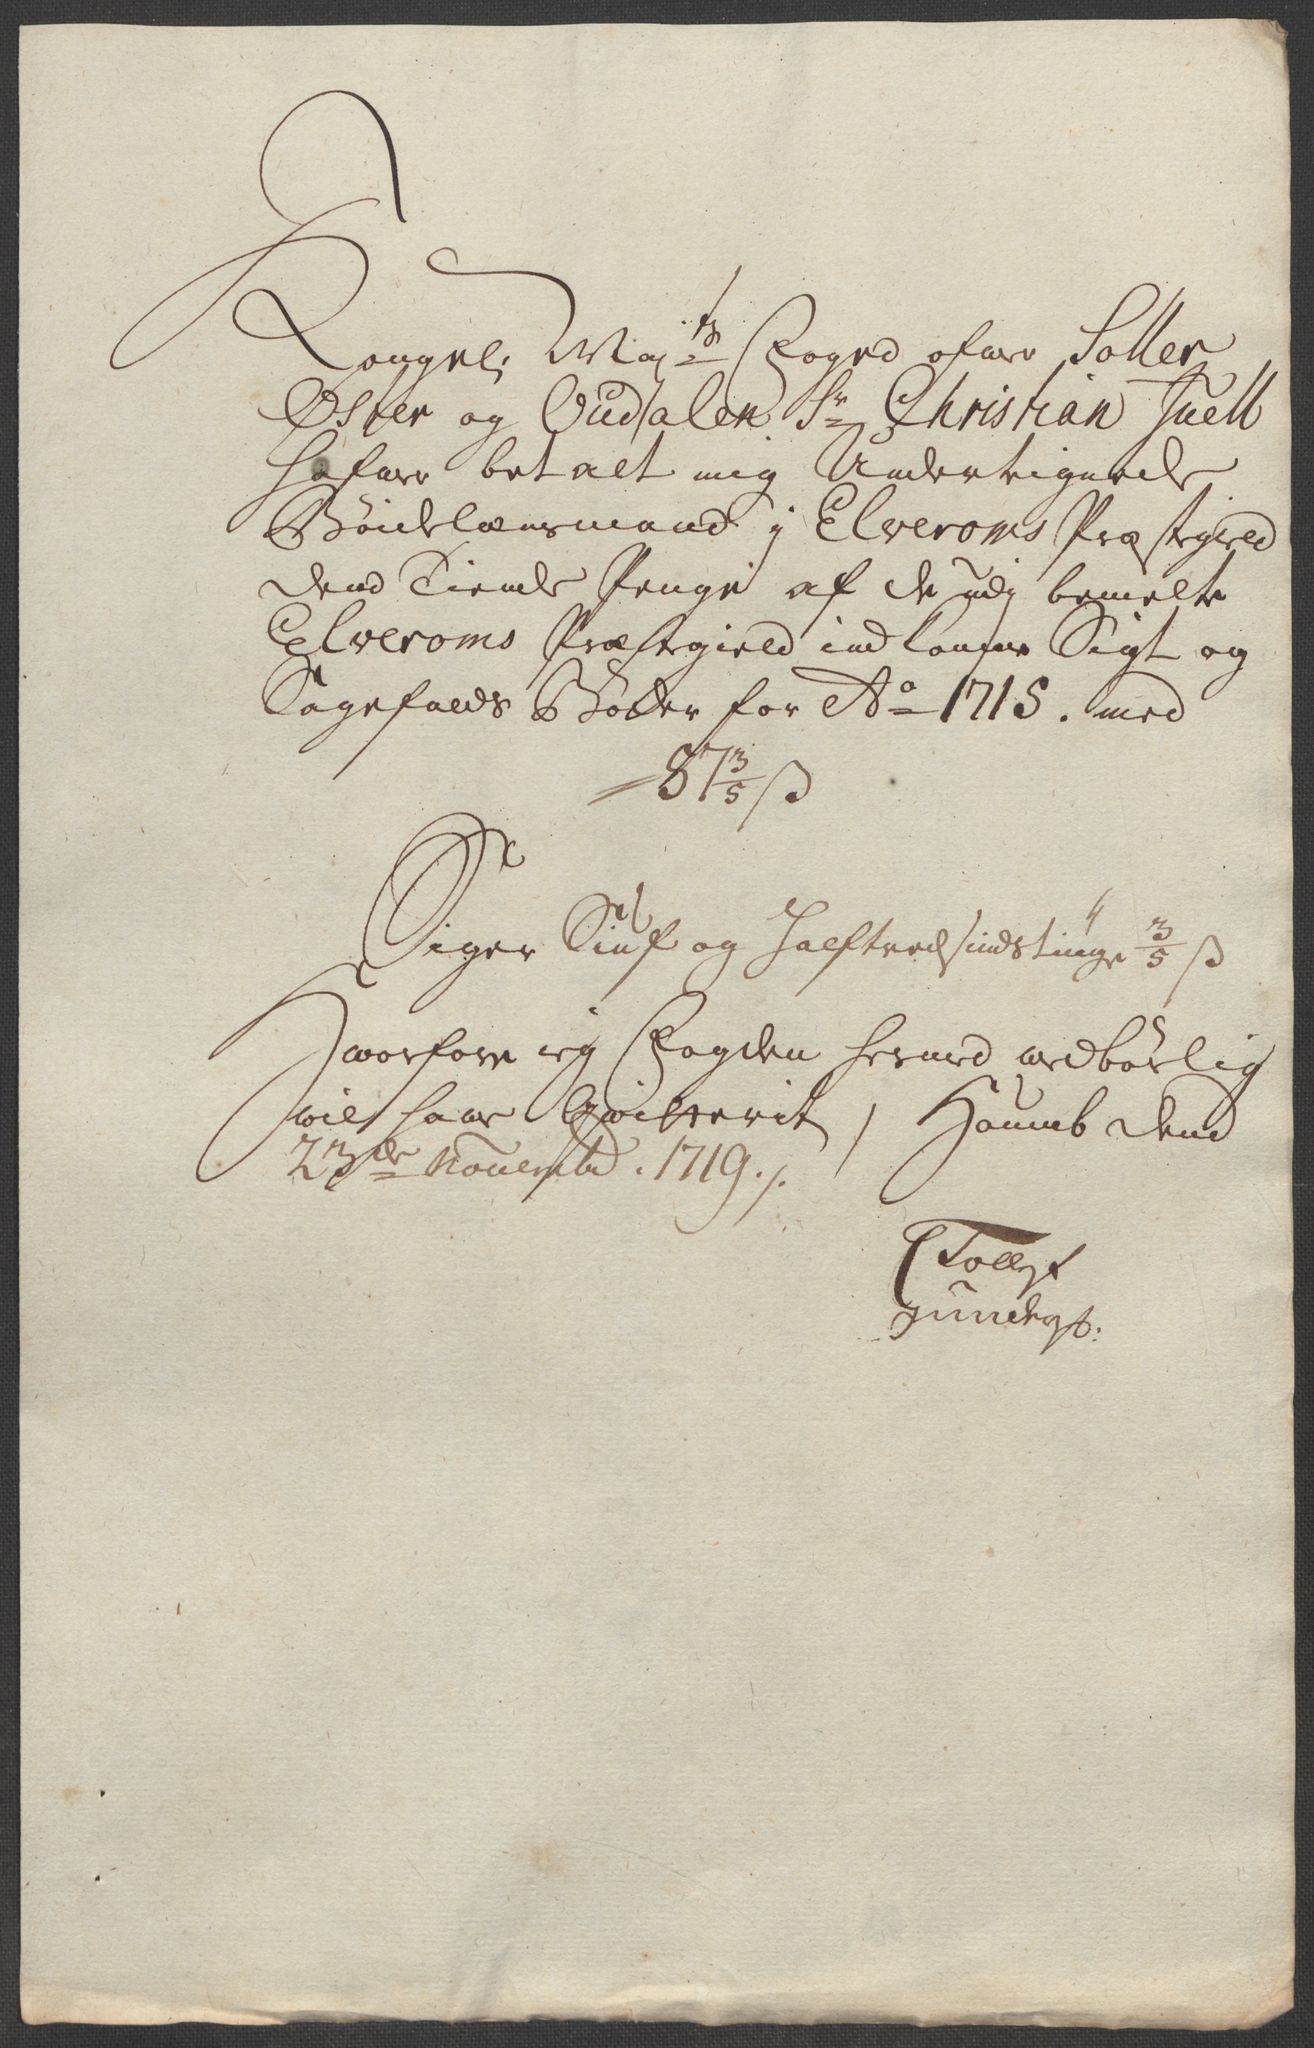 Kongel: May:ts Foged ofver Soller
Øster og Oudalen Sr Christian Juell
hafver betalt mig Undertegnede
Bøidelænsmand i Elveroms Præstegield
dend Tiende Penge af de udj bemelte
Elveroms Præstegield indkomne Sigt og
Sagefalds Bøder for Ao 1715. med
57 3/5 ß
Siger Siuf og Halftredsindstiuge 3/5 ß
Hvorfore ieg Fogden hermed tilbørlig
vil hafve Qvitterit, Houmb dend
23de Novembr. 1719 ./.
Tollef
Gunders: